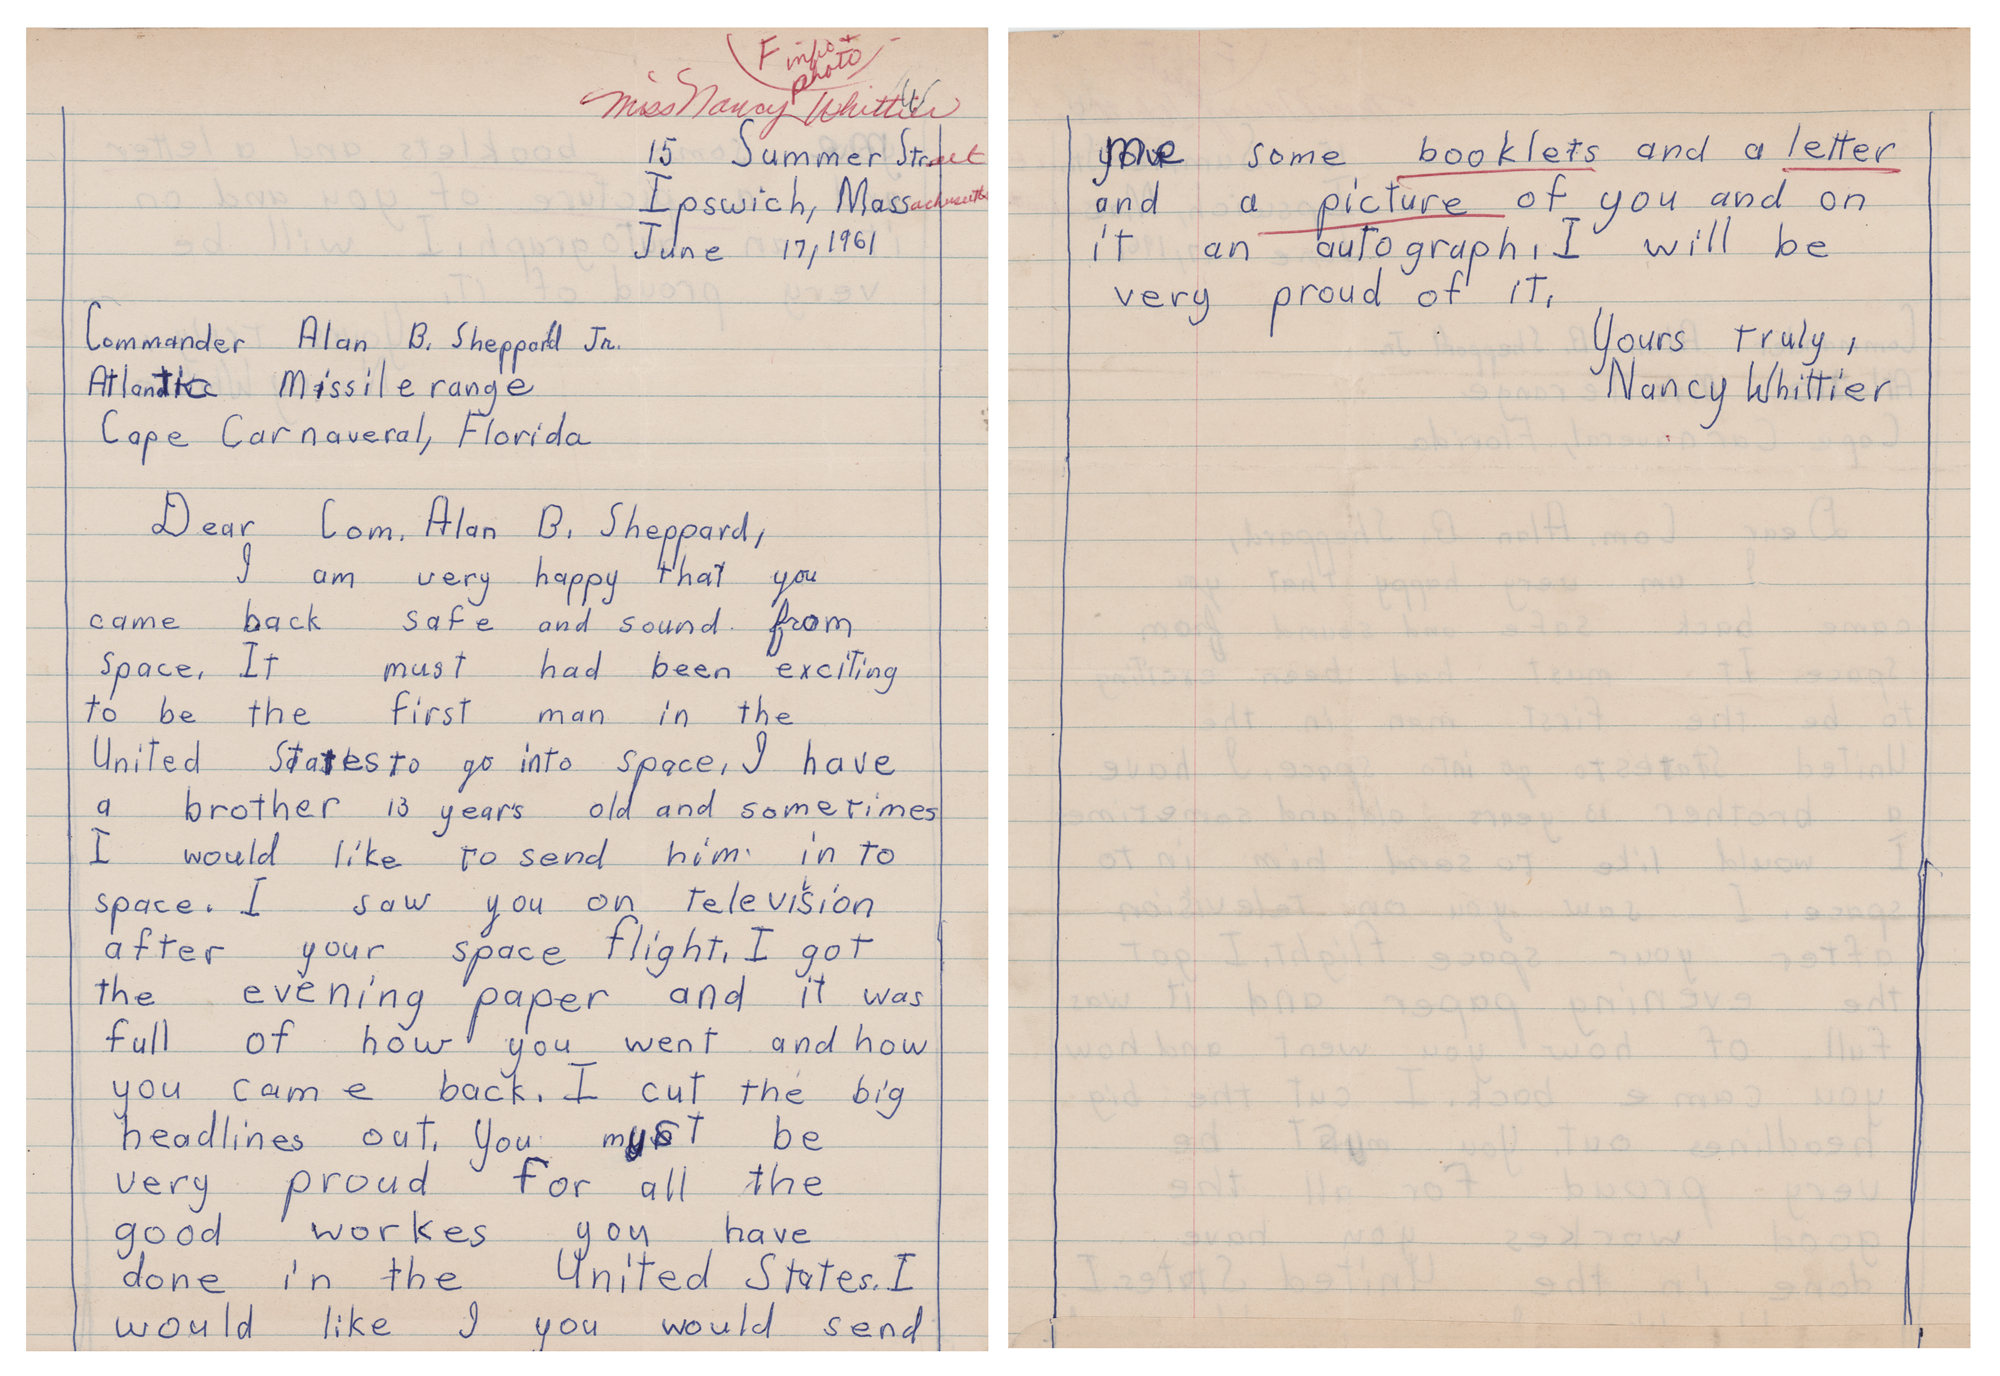 F info +
photo
Miss Nancy Whittier
15 Summer Street
Ipswich, Massachusetts
June 17, 1961
Commander Alan B. Sheppard Jr.
Atlantic Missile range
Cape Carnaveral, Florida
Dear Com. Alan B. Sheppard,
I am very happy that you
came back safe and sound from
space. It must had been exciting
to be the first man in the
United States to go into space. I have
a brother 13 years old and sometimes
I would like to send him in to
space. I saw you on television
after your space flight. I got
the evening paper and it was
full of how you went and how
you came back. I cut the big
headlines out. You must be
very proud for all the
good workes you have
done in the United States. I
would like I you would send
me some booklets and a letter
and a picture of you and on
it an autograph. I will be
very proud of it.
Yours truly,
Nancy Whittier